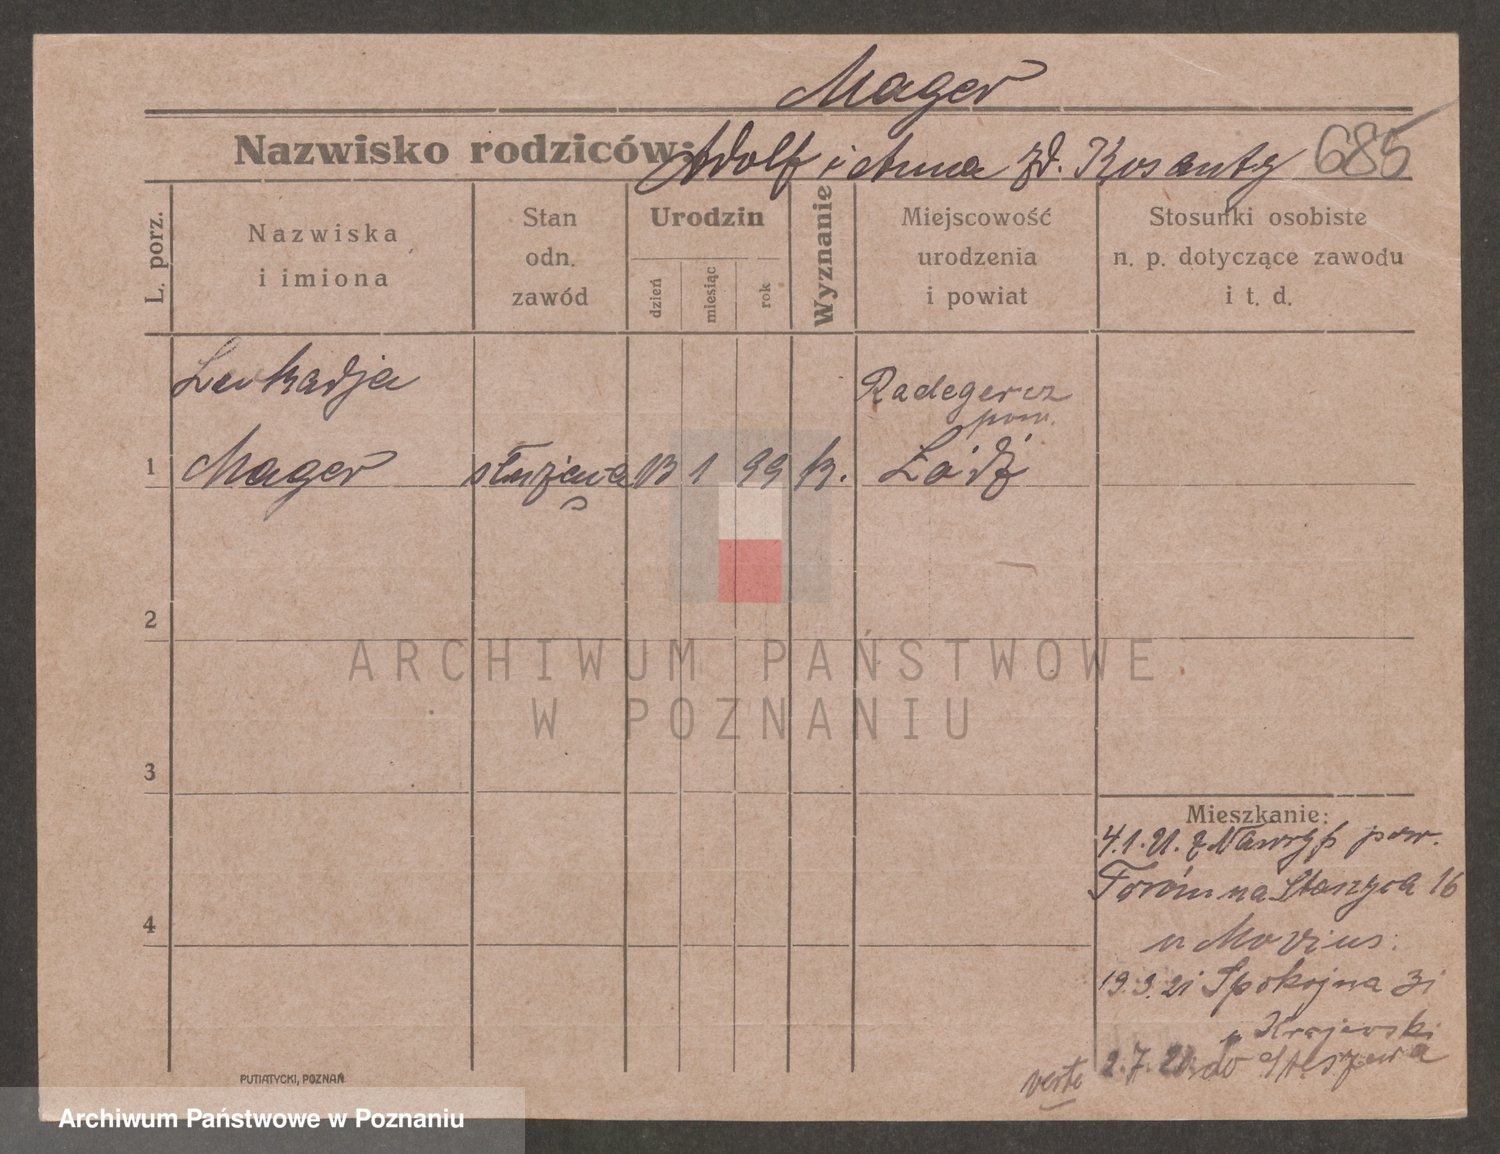 Mager
Nazwisko rodziców: Adolf i Anna zd. Kosanty 685
L. porz.
Nazwiska
i imiona
Stan
odn.
zawód
Urodzin
dzień
miesiąc
rok
Wyznanie
Miejscowość
urodzenia
i powiat
Stosunki osobiste
n. p. dotyczące zawodu
i t. d.
Leokadja
Radegercz
pow.
1 Mager służąca 13 1 99 k. Łódź
2
ARCHIWUM PAŃSTWOWE
W POZNANIU
3
Mieszkanie:
4.1.21. z pow.
Toruń na Staszyca 16
u Movius.
4
19.3.21 Spokojna 31
" Krajewski
2.7.21. do Stęszewa
verte
PUTIATYCKI, POZNAŃ
Archiwum Państwowe w Poznaniu